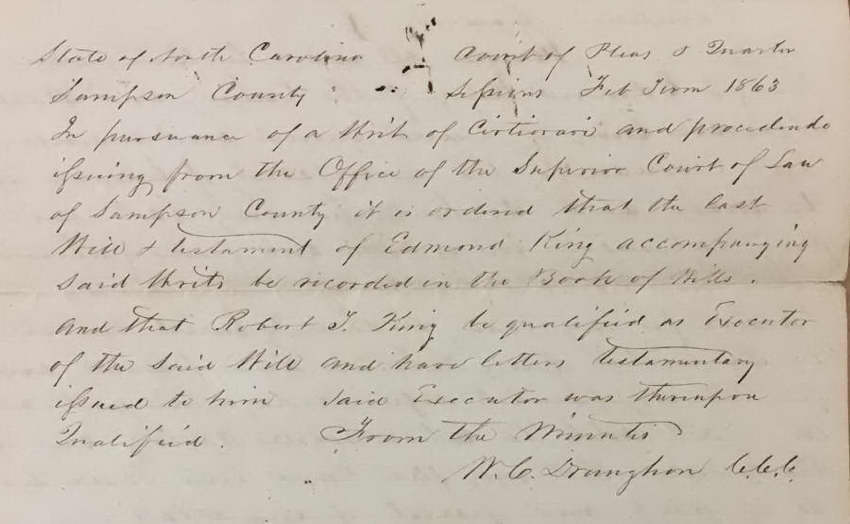 State of North Carolina Court of Pleas & Quarter
Sampson County Sessions Feb Term 1863
In pursuance of a Writ of Certiorari and procedendo
issuing from the Office of the Superior Court of Law
of Sampson County it is ordered that the last
Will & testament of Edmond King accompanying
said Writs be recorded in the Book of Wills.
And that Robert J. King be qualified as Executor
of the said Will and have letters testamentary
issued to him Said Executor was thereupon
Qualified. From the Minutes
W. C. Draughon C.C.C.